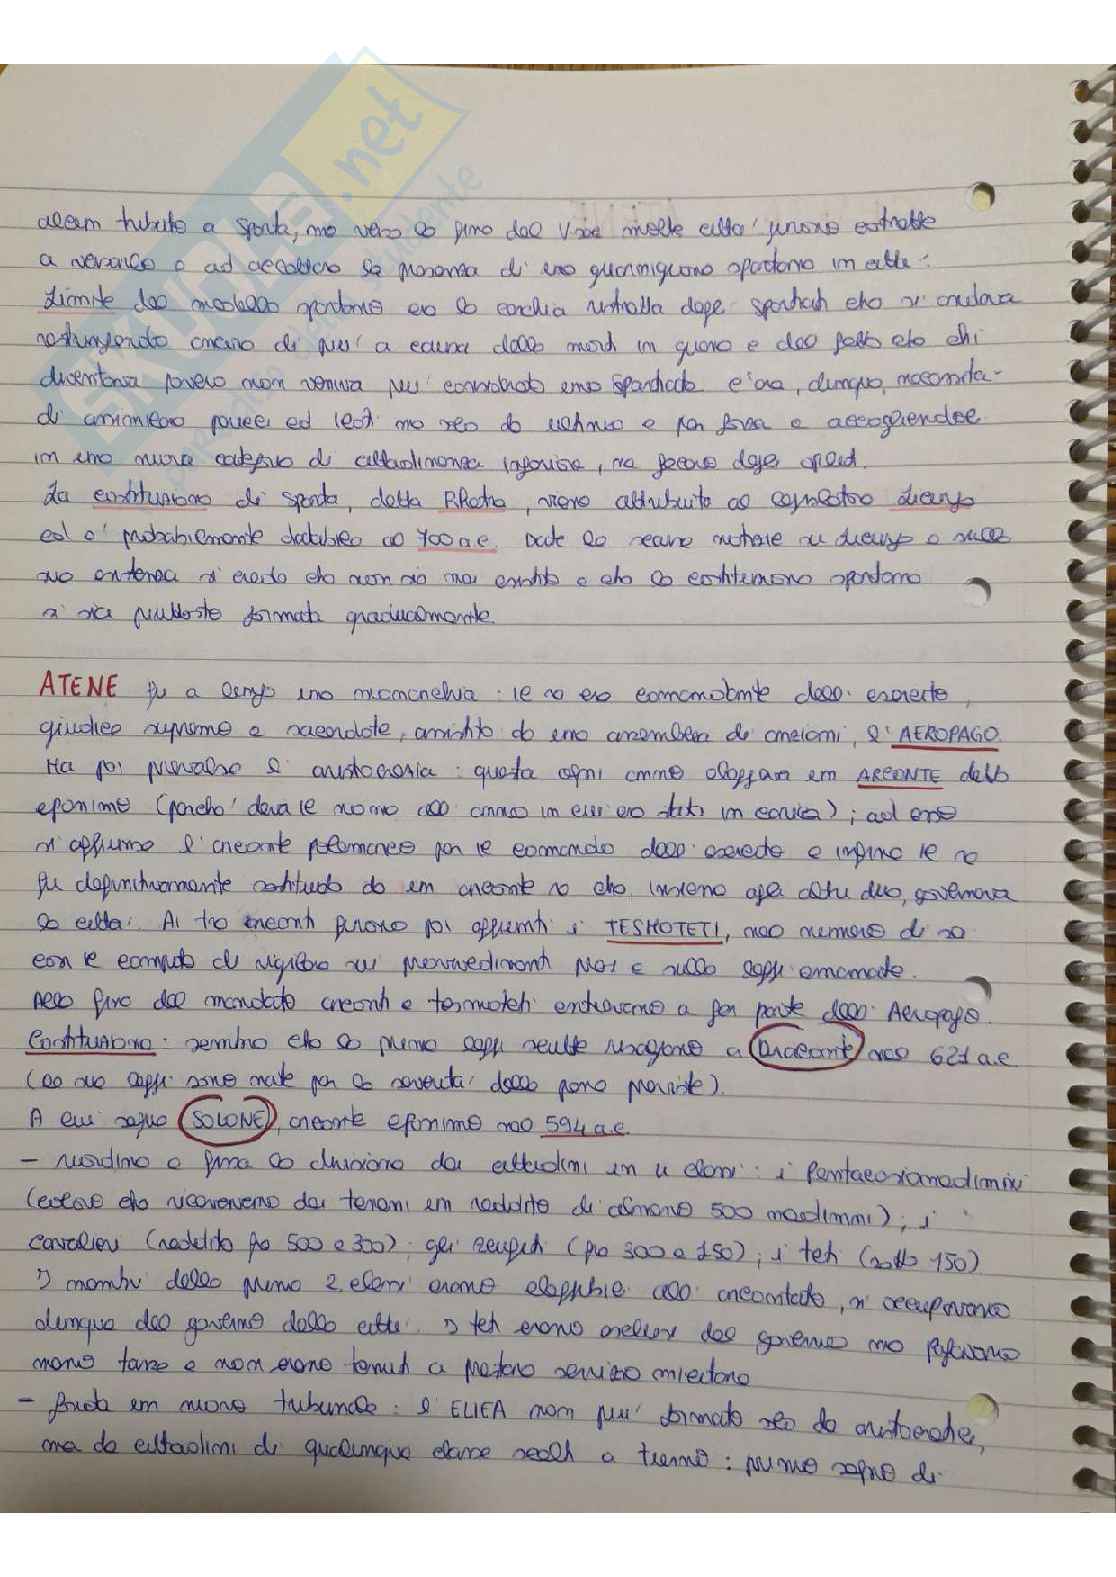 alcun tributo a Sparta, ma verso la fine del V sec molte citta' furono costrette
a versarlo e ad accettare la presenza di una guarnigione spartana in citta'.
Limite del modello spartano era la cerchia ristretta degli spartiati che si andava
restringendo ancora di piu' a causa delle morti in guerra e del fatto che chi
diventava povero non veniva piu' considerato uno spartiata e'ra, dunque, necessita-
di arruolare perieci ed iloti ma solo da ultimo e per forza e accogliendoli
in una nuova categoria di cittadinanza inferiore,
La costituzione di Sparta, detta RRetra, viene attribuita al legislatore Licurgo
ed e' probabilmente databile al 700 a.C. Date le scarse notizie su Licurgo e sulla
sua esistenza si crede che non sia mai esistito e che la costituzione spartana
si sia piuttosto formata gradualmente.
ATENE fu a lungo una monarchia: il re era comandante dell' esercito,
giudice supremo e sacerdote, assistito da una assemblea di anziani, l' AEROPAGO.
Ha poi prevalso l' aristocrazia: questa ogni anno eleggeva un ARCONTE detto
eponimo (perche' dava il nome all' anno in cui era stato in carica); ad esso
si affianco l' arconte polemarco per il comando dell' esercito e infine il re
fu definitivamente sostituito da un arconte re che, insieme agli altri due, governava
la citta'. Ai tre arconti furono poi aggiunti i TESMOTETI, nel numero di sei
con il compito di vigilare sui provvedimenti presi e sulle leggi emanate.
Alla fine del mandato arconti e tesmoteti entravano a far parte dell' Aeropago.
Costituzione: sembra che le prime leggi scritte risalgano a Dracone nel 621 a.C
(le sue leggi sono note per la severita' delle pene previste).
A cui segue SOLONE, arconte eponimo nel 594 a.C.
- riordino e fissa la divisione dei cittadini in 4 classi: i Pentacosiomedimni
(coloro che ricavavano dai terreni un reddito di almeno 500 medimni); i
cavalieri (reddito fra 500 e 300); gli zeugiti (fra 300 e 150); i teti (sotto 150)
I membri delle prime 2 classi erano eleggibili all' arcontato, si occupavano
dunque del governo della citta'. I teti erano esclusi dal governo ma pagavano
meno tasse e non erano tenuti a prestare servizio militare
- fonda un nuovo tribunale: l' ELIEA non piu' formato solo da aristocratici,
ma da cittadini di qualunque classe scelti a turno: primo segno di
SKUOLA.net